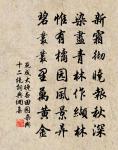 新霜彻晓报秋深
染尽青林作缬林
惟有橘园风景异
碧丛丛里万黄金
范成大诗春田园杂兴
十二绝词典网集